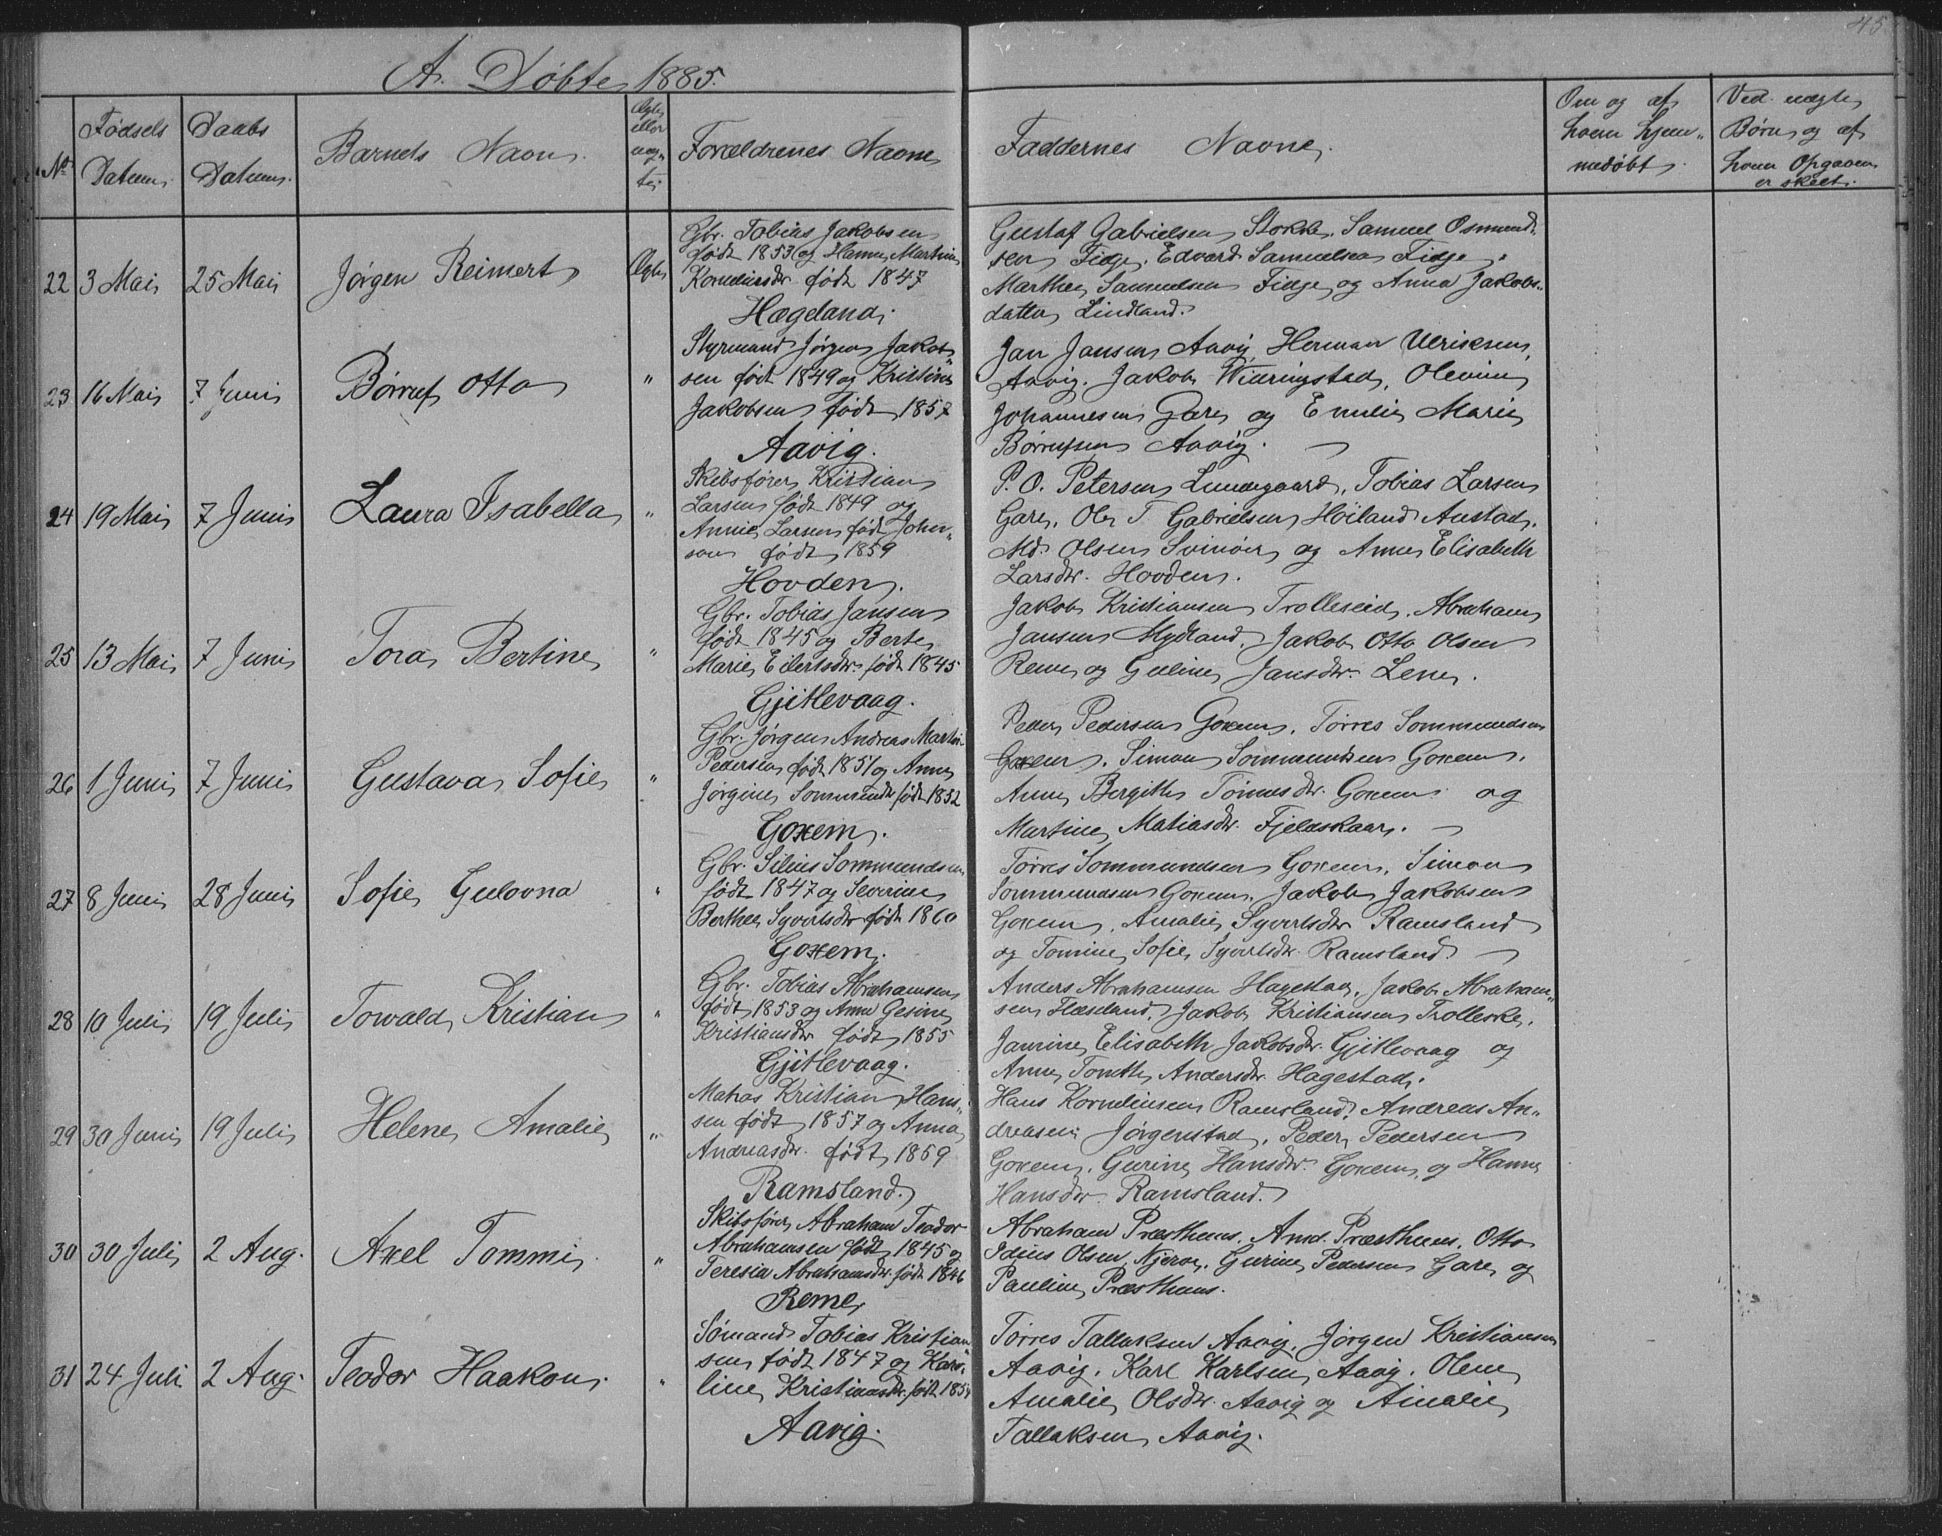 45
A. Døbte 1885.
No
Fødsels Datum.
Daabs Datum.
Barnets Navn.
Ægte eller uægte.
Forældrenes Navne
Faddernes Navne.
Om og af hvem hjemmedøbt.
Ved uægte Børn, og af hvem Opgaven er skeet.
22 3 Mai 25 Mai Jørgen Reimert Ægte
Gbr. Tobias Jakobsen
født 1853 og Hanne Martine
Korneliusdtr. født 1847
Hægeland.
Gustaf Gabrielsen Stokke. Samuel Osmund-
sen Fidje. Edvard Samuelsen Fidje.
Marthe Samuelsen Fidje og Anna Jakobs-
datter Lindland.
23 16 Mai 7 Juni Børruf Otto "
Styrmand Jørgen Jakob-
sen født 1849 og Kristine
Jakobsen født 1857
Aavig.
Jan Jansen Aavig, Herman Ulriksen
Aavig. Jakob Widringstad, Olevine
Johannesen Gare og Emilie Marie
Børrufsen Aavig.
24 19 Mai 7 Juni Laura Isabella "
Skibsfører Kristian
Larsen født 1849 og
Annie Larsen født John-
son født 1859
Hovden.
P. O. Petersen Lundegaard, Tobias Larsen
Gare. Ole T. Gabrielsen Høiland Austad.
Md. Olsen Svinøer og Anne Elisabeth
Larsdtr. Hovden.
25 13 Mai 7 Juni Tora Bertine "
Gbr. Tobias Jansen
født 1845 og Berte
Marie Eilertsdtr. født 1845
Gjitlevaag.
Jakob Kristiansen Trolleseid. Abraham
Jansen Mydland, Jakob Otto Olsen
Reme og Guline Jansdtr. Lene.
26 1 Juni 7 Juni Gustava Sofie "
Gbr. Jørgen Andreas Martin
Pedersen født 1851 og Anne
Jørgine Sommundsdtr født 1852
Goxem.
Peder Pedersen Goxem. Tørres Sommundsen
Goxem. Simon Sommundsen Goxem.
Anne Bergithe Tønnesdtr. Goxem og
Martine Matiasdtr. Fjeldskaar.
27 8 Juni 28 Juni Sofie Gulovna "
Gbr. Silius Sommundsen
født 1847 og Severine
Berthe Syvertsdtr født 1860
Goxem.
Tørres Sommundsen Goxem. Simon
Sommundsen Goxem. Jakob Jakobsen
Goxem. Amalie Syvertsdtr Ramsland
og Tomine Sofie Syvertsdtr. Ramsland.
28 10 Juli 19 Juli Towald Kristian "
Gbr. Tobias Abrahamsen
født 1853 og Anne Gesine
Kristiansdtr født 1855
Gjitlevaag.
Anders Abrahamsen Hagestad. Jakob Abraham-
sen Flæsland, Jakob Kristiansen Trolleske.
Janine Elisabeth Jakobsdtr. Gjitlevaag og
Anne Tomethe Andersdtr. Hagestad.
29 30 Juni 19 Juli Helene Amalie "
Matias Kristian Han-
sen født 1857 og Anna
Andreasdtr. født 1859
Ramsland.
Hans Korneliussen Ramsland. Andreas An-
dreasen Jørgenstad. Peder Pedersen
Goxem. Gurine Hansdtr. Goxem og Hanne
Hansdtr. Ramsland.
30 30 Juli 2 Aug. Axel Tommi. "
Skibsfører Abraham Teodor
Abrahamsen født 1845 og
Teresia Abrahamsdtr. født 1846
Reme
Abraham Præsthuus. Amd. Præsthuus. Otto
Idius Olsen Njerve. Gurine Pedersen Gare og
Pauline Præsthuus.
31 24 Juli 2 Aug. Teodor Haakon. "
Sømand Tobias Kristian-
sen født 1847 og Karo-
line Kristiansdtr. født 185
Aavig.
Tørres Tallaksen Aavig. Jørgen Kristiansen
Aavig. Karl Karlsen Aavig. Olene
Amalie Olsdtr. Aavig og Amalie
Tallaksen Aavig.